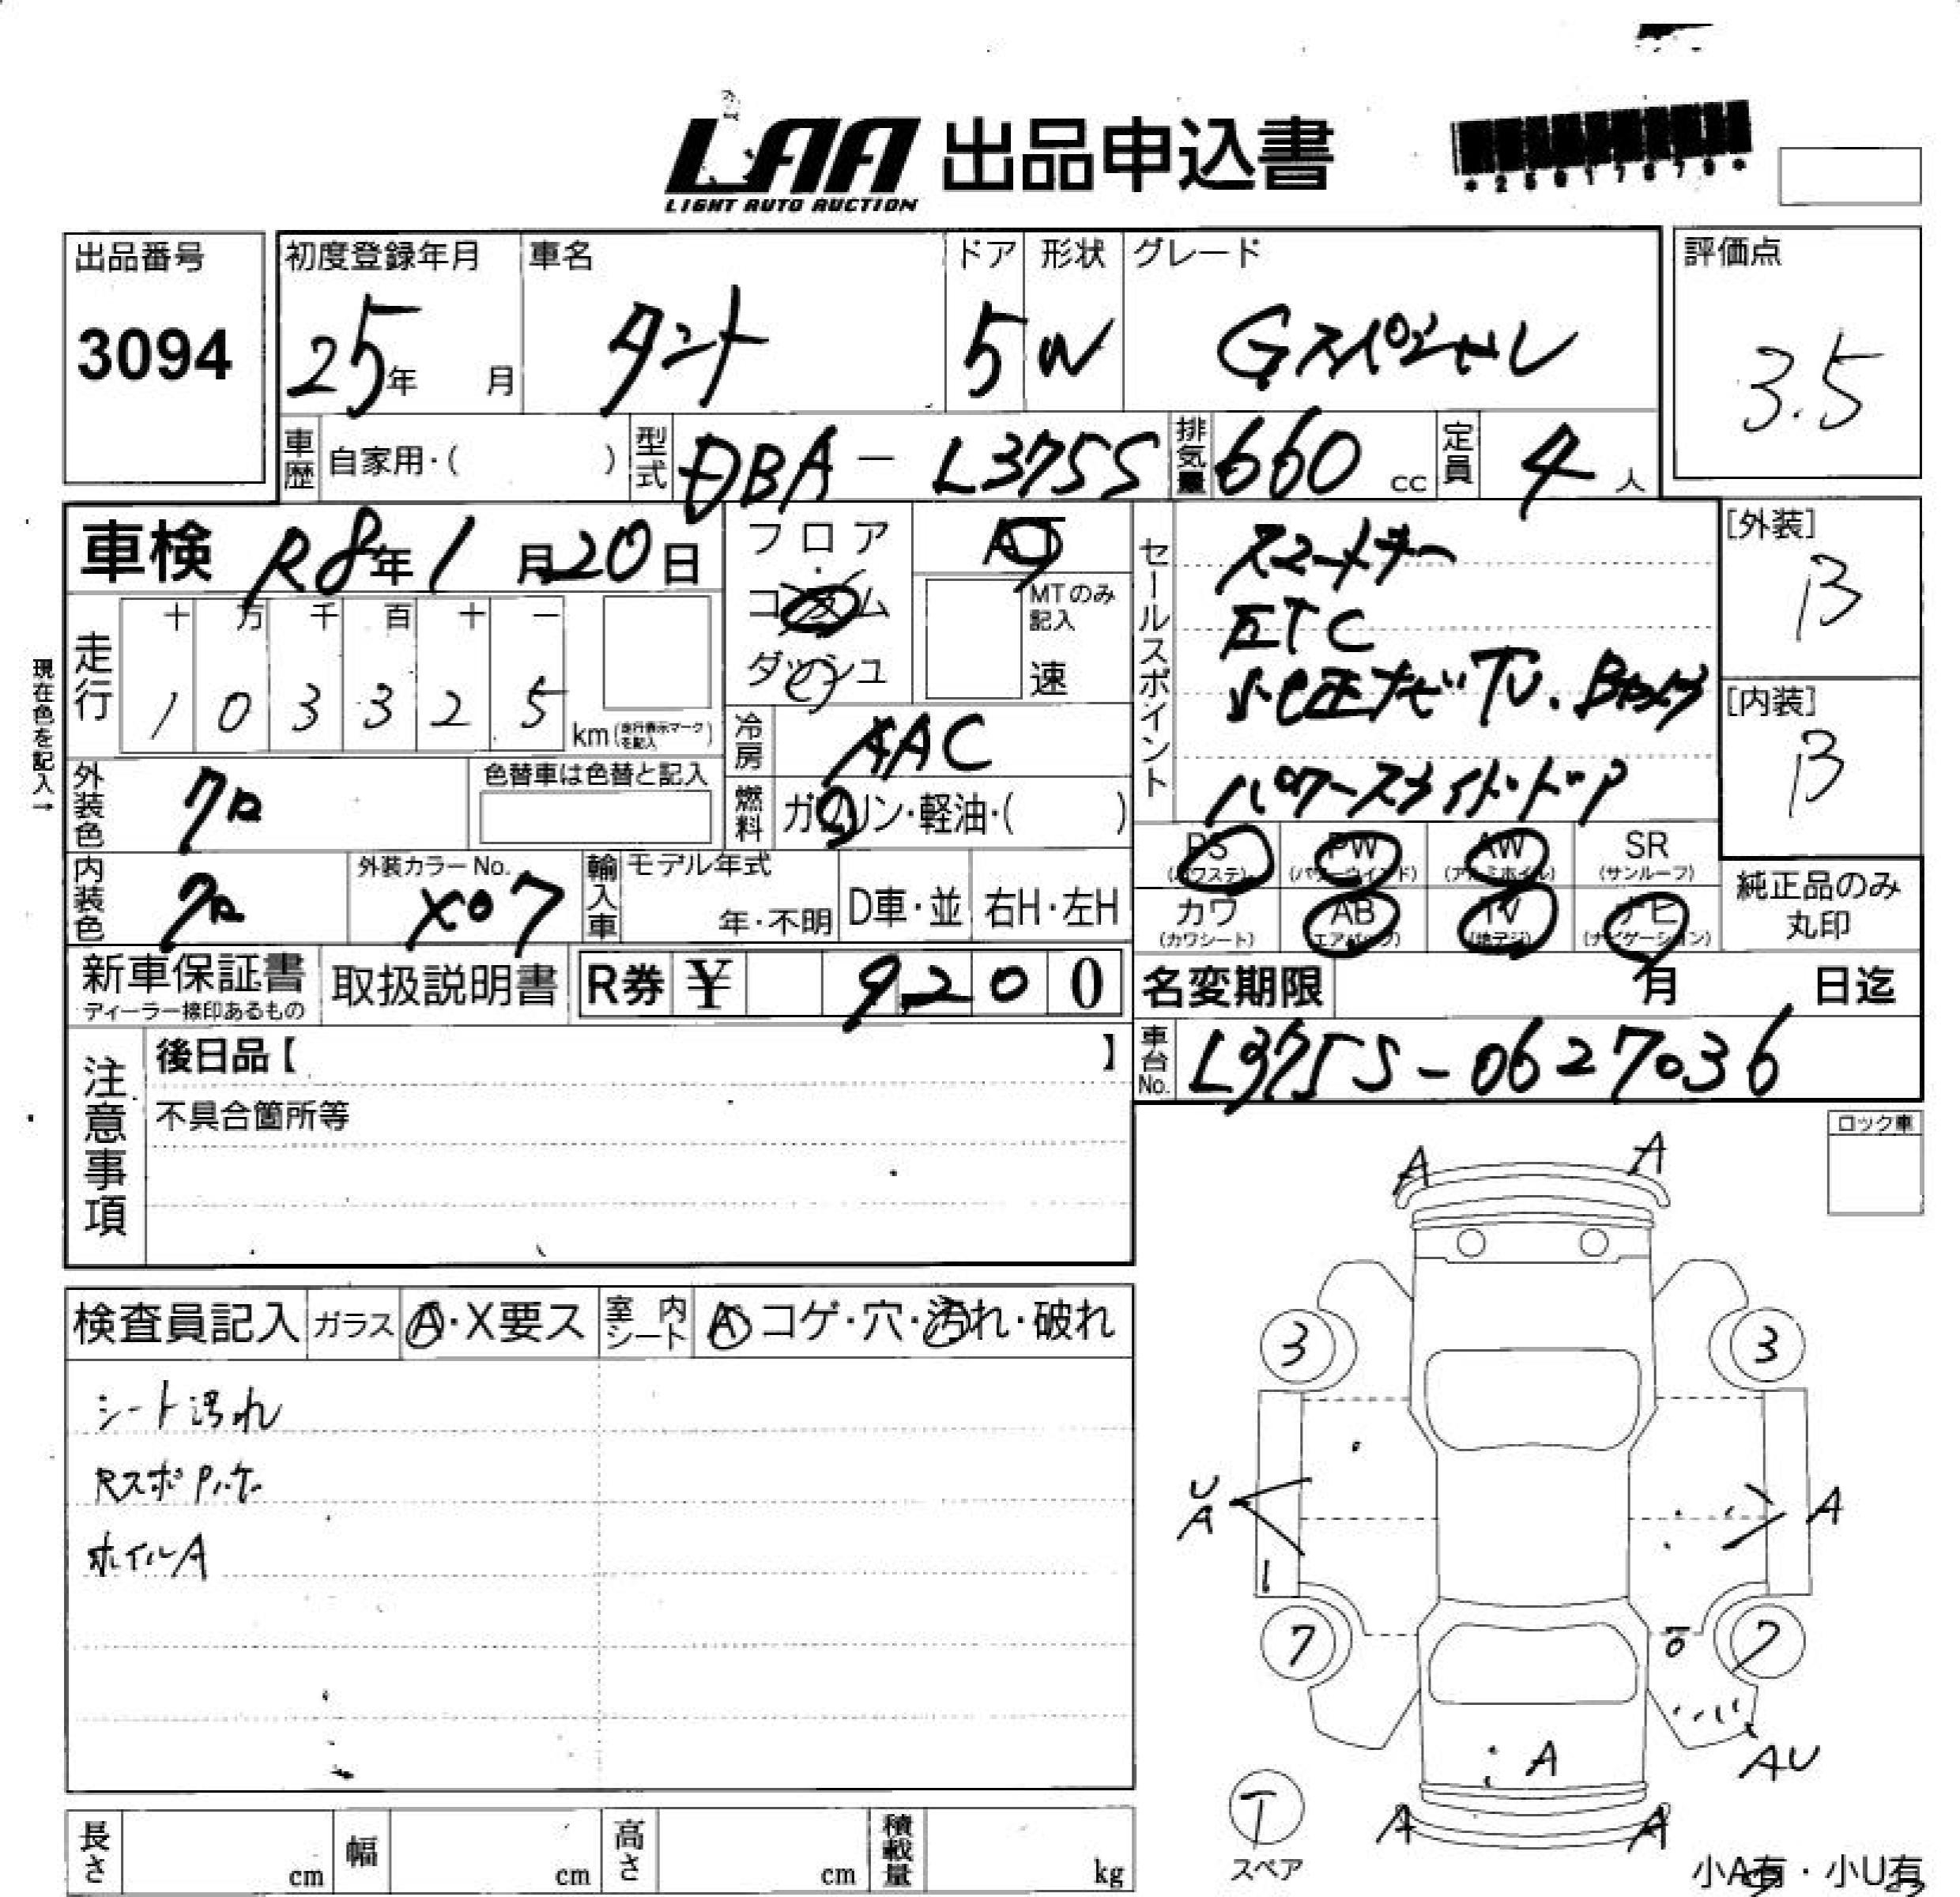 LAA 出品申込書
LIGHT AUTO AUCTION
出品番号
3094
初度登録年月
25年 月
車名
タント
ドア
5
形状
W
グレード
Gスペシャル
評価点
3.5
車歴 自家用・( )
型式 DBA - L375S
排気量 660 cc
定員 4 人
車検 R8年1月20日
フロア
コラム
ダッシュ
AT
MTのみ記入
速
セールスポイント
スマートキー
ETC
純正ナビTV.Bカメラ
パワースライドドア
[外装]
B
[内装]
B
現在色を記入→
走行
十 万 千 百 十 一
1 0 3 3 2 5
km (走行表示マークを記入)
冷房 AAC
外装色 クロ
色替車は色替と記入
燃料 ガソリン・軽油・( )
PS (パワステ)
PW (パワーウインド)
AW (アルミホイル)
SR (サンルーフ)
カワ (カワシート)
AB (エアバック)
TV (地デジ)
ナビ (ナビゲーション)
純正品のみ
丸印
内装色 クロ
外装カラーNo.
X07
輸入車
モデル年式
年・不明
D車・並
右H・左H
新車保証書
ディーラー捺印あるもの
取扱説明書
R券 ¥ 9200
名変期限 月 日迄
車台No. L375S-0627036
注意事項
後日品【 】
不具合箇所等
ロック車
検査員記入
ガラス A・X要ス
室内シート A コゲ・穴・汚れ・破れ
シート汚れ
Rスポ
ホイルA
A A
3 3
U
A
A
7 7
A
AU
A A
T
スペア
小A有・小U有
長さ cm
幅 cm
高さ cm
積載量 kg